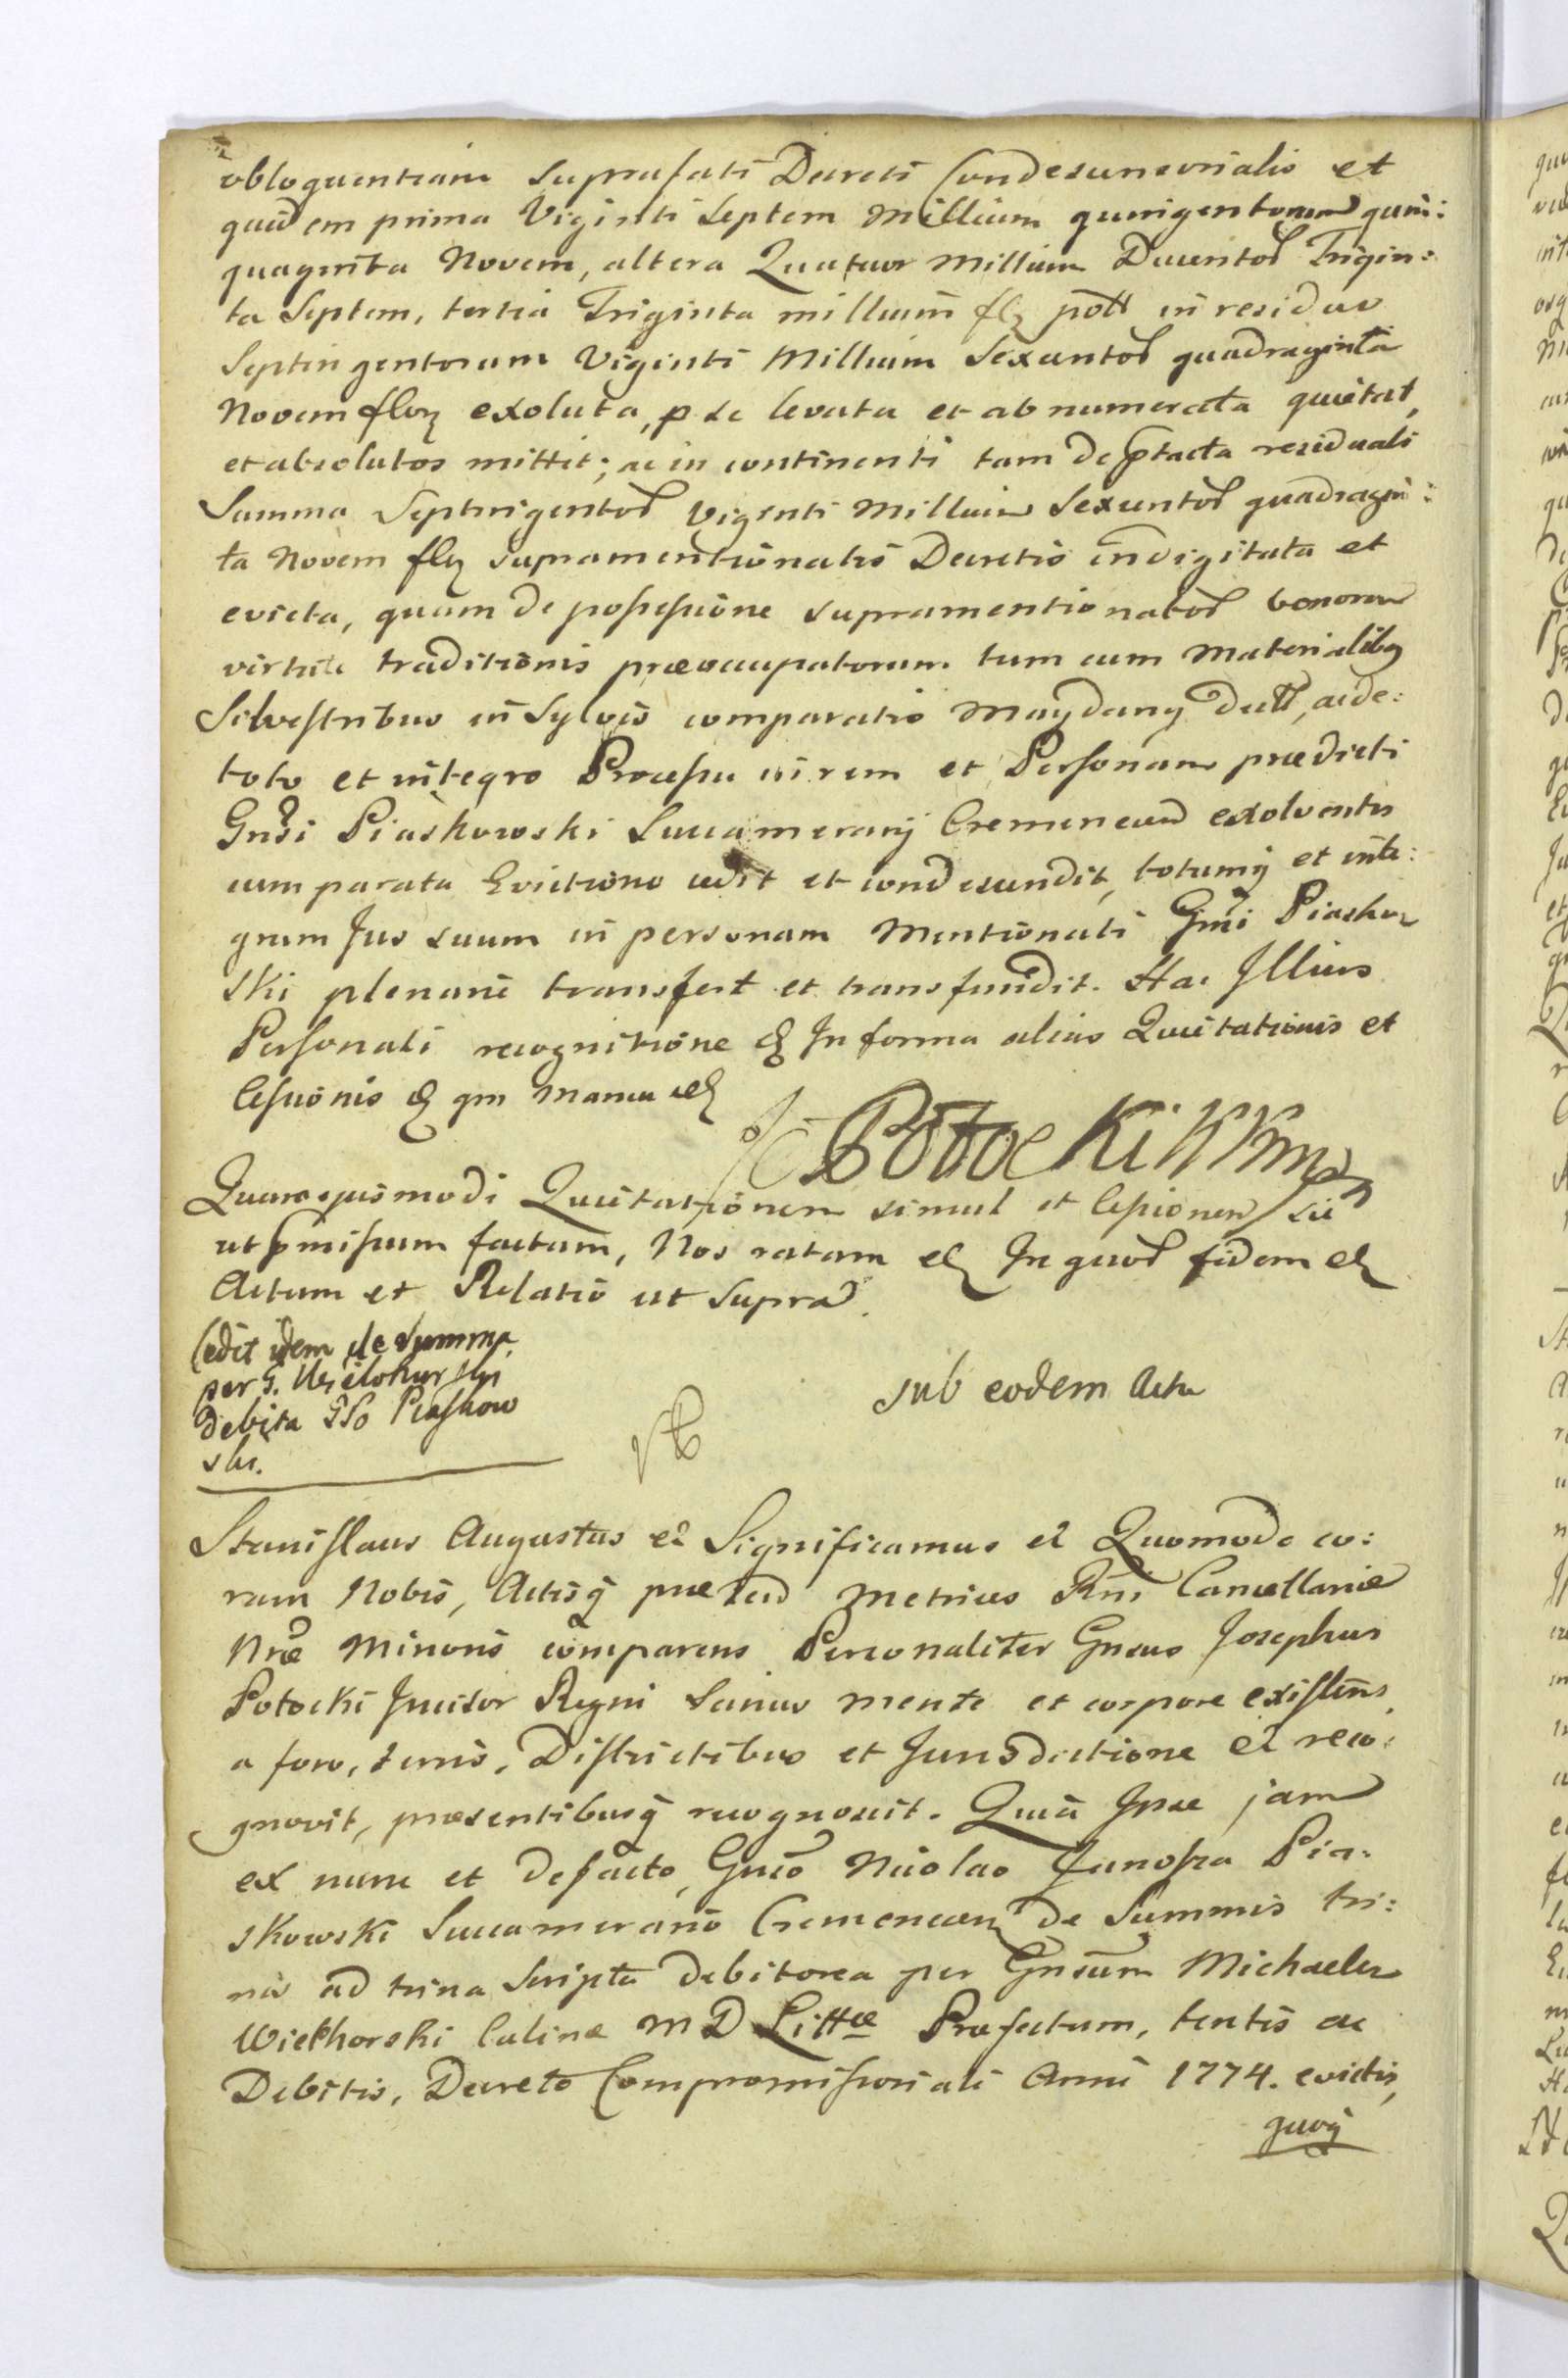 obloquentiam suprafati Decreti Condescensorialis et
quidem prima Viginti Septem Millium quingentorum quin:
quaginta Novem, altera Quatuor Millium Ducentor Trigin:
ta Septem, tertia Triginta millium flr poll in residuo
Septingentorum Viginti Millium Sexcentor quadraginta
Novem flor exoluta, p se levata et abnumerata quietat,
et absolutos mittit; ac in continenti tam de ptacta residuali
Summa Septingentor Viginti Millium Sexcentor quadragin:
ta Novem flr supramentionatis Decretis indigitata et
evicta, quam de possessione supramentionator bonorum
virtute traditionis praeoccupatorum tum cum Materialibq
Silvestribus in Sylvis comparatis Maydany dictt, ac de:
toto et integro Processu in rem et Personam praedicti
Gnsi Piaskowski Succamerarij Cremenecen exolventis
cum parata Evictione cedit et condescendit, totumq et inte:
grum Jus suum in personam Mentionati Gnsi Piaskow
ski plenarie transfert et transfundit. Hac Illius
Personali recognitione & In forma alias Quietationis et
Cessionis & qm Manu &
J Potocki KKm
Quam ejusmodi Quietationem simul et Cessionem sic
ut pmissum factam, Nos ratam & In quor fidem &
Actum et Relatio ut supra.
Cedit idem de Summa
per G. Wielohurski
debita GSo Piaskow
ski.
sub eodem Actu
Stanislaus Augustus & Significamus & Quomodo co:
ram Nobis, Actisq praesend Metrices Rni Cancellariae
Nrae Minoris comparens Personaliter Gnsus Josephus
Potocki Incisor Regni Sanus mente et corpore existens,
a foro, terris, Districtibus et Jurisdictione & reco:
gnovit, praesentibusq recognoscit. Quia Ipse jam
ex nunc et de facto, Gnso Nicolao Junosza Pia:
skowski Succamerario Cremenecen de Summis tri:
nis ad trina Scripta debitorea per Gnsum Michaelem
Wielhorski Culinae M D Littae Praefectum, tentis ac
Debitis, Decreto Compromissoriali Anni 1774. evictis,
quoq